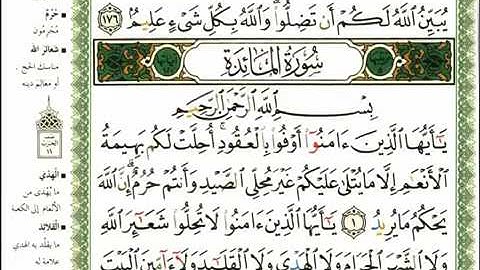 يُبَيِّنُ ٱللَّهُ لَكُمْ أَن تَضِلُّوا۟ وَٱللَّهُ بِكُلِّ شَىْءٍ عَلِيمٌۢ ١٧٦
سُورَةُ المَائِدَةِ
بِسْمِ ٱللَّهِ ٱلرَّحْمَٰنِ ٱلرَّحِيمِ
يَٰٓأَيُّهَا ٱلَّذِينَ ءَامَنُوٓا۟ أَوْفُوا۟ بِٱلْعُقُودِ أُحِلَّتْ لَكُم بَهِيمَةُ
ٱلْأَنْعَٰمِ إِلَّا مَا يُتْلَىٰ عَلَيْكُمْ غَيْرَ مُحِلِّى ٱلصَّيْدِ وَأَنتُمْ حُرُمٌ إِنَّ ٱللَّهَ
يَحْكُمُ مَا يُرِيدُ ١ يَٰٓأَيُّهَا ٱلَّذِينَ ءَامَنُوا۟ لَا تُحِلُّوا۟ شَعَٰٓئِرَ ٱللَّهِ
وَلَا ٱلشَّهْرَ ٱلْحَرَامَ وَلَا ٱلْهَدْىَ وَلَا ٱلْقَلَٰٓئِدَ وَلَآ ءَآمِّينَ ٱلْبَيْتَ
حُرُمٌ
مُحْرِمُون
شعائر الله
مناسك الحج
أو معالم دينه
الهَدْيَ
ما يُهْدى من
الأنعام إلى الكعبة
القلائد
ما يقلّد به الهدي
علامة له